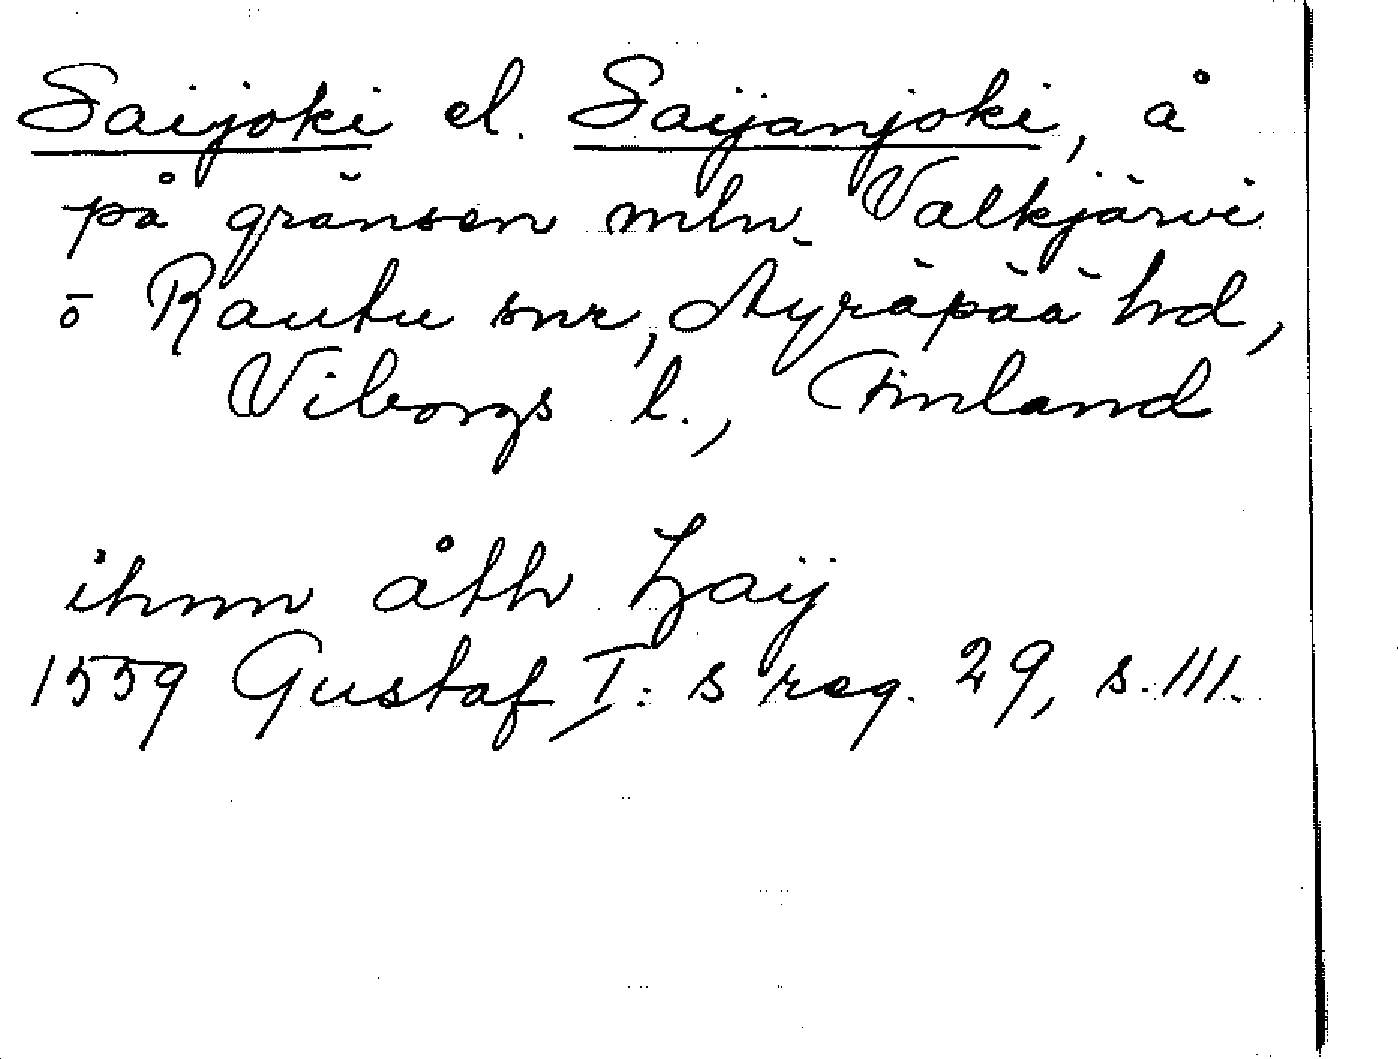 Saijoki el. Saijanjoki, å
på gränsen mln Valkjärvi
o Rautu snr, Äyräpää hd,
Viborgs l., Finland
ihnn åth Zaij
1559 Gustaf I:s reg. 29, s. 111.